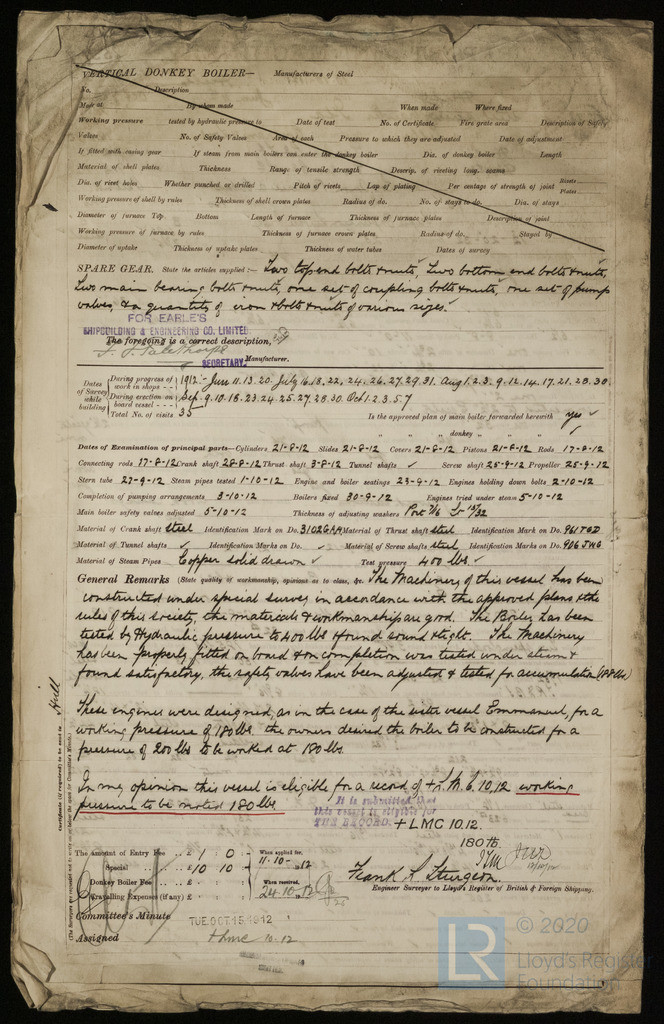 VERTICAL DONKEY BOILER— Manufacturers of Steel
No. Description
Made at By whom made When made Where fixed
Working pressure tested by hydraulic pressure to Date of test No. of Certificate Fire grate area Description of Safety
Valves No. of Safety Valves Area of each Pressure to which they are adjusted Date of adjustment
If fitted with easing gear If steam from main boilers can enter the donkey boiler Dia. of donkey boiler Length
Material of shell plates Thickness Range of tensile strength Descrip. of riveting long. seams
Dia. of rivet holes Whether punched or drilled Pitch of rivets Lap of plating Per centage of strength of joint Rivets Plates
Working pressure of shell by rules Thickness of shell crown plates Radius of do. No. of stays to do. Dia. of stays
Diameter of furnace Top Bottom Length of furnace Thickness of furnace plates Description of joint
Working pressure of furnace by rules Thickness of furnace crown plates Radius of do. Stayed by
Diameter of uptake Thickness of uptake plates Thickness of water tubes Dates of survey
SPARE GEAR. State the articles supplied:— Two top end bolts & nuts, Two bottom end bolts & nuts,
Two main bearing bolts & nuts, one set of coupling bolts & nuts, one set of pump
valves, & a quantity of iron & bolts & nuts of various sizes.
FOR EARLE'S
SHIPBUILDING & ENGINEERING CO. LIMITED
The foregoing is a correct description,
SECRETARY. Manufacturer.
Dates of Survey while building
During progress of work in shops - - 1912:- Jun 11. 13. 20. July 16. 18. 22. 24. 26. 27. 29. 31. Aug 1. 2. 3. 9. 12. 14. 17. 21. 28. 30.
During erection on board vessel - - - Sep. 9. 10. 16. 23. 24. 25. 27. 28. 30. Oct 1. 2. 3. 5. 7
Total No. of visits 35 Is the approved plan of main boiler forwarded herewith yes
" " " donkey " " "
Dates of Examination of principal parts—Cylinders 21-8-12 Slides 21-8-12 Covers 21-8-12 Pistons 21-8-12 Rods 17-8-12
Connecting rods 17-8-12 Crank shaft 28-8-12 Thrust shaft 3-8-12 Tunnel shafts ✓ Screw shaft 25-9-12 Propeller 25-9-12
Stern tube 27-9-12 Steam pipes tested 1-10-12 Engine and boiler seatings 23-9-12 Engines holding down bolts 2-10-12
Completion of pumping arrangements 3-10-12 Boilers fixed 30-9-12 Engines tried under steam 5-10-12
Main boiler safety valves adjusted 5-10-12 Thickness of adjusting washers Port 7/16 St 15/32
Material of Crank shaft steel Identification Mark on Do. 3102GAH Material of Thrust shaft steel Identification Mark on Do. 961TGD
Material of Tunnel shafts ✓ Identification Marks on Do. ✓ Material of Screw shafts steel Identification Marks on Do. 906JWG
Material of Steam Pipes Copper solid drawn ✓ Test pressure 400 lbs ✓
General Remarks (State quality of workmanship, opinions as to class, &c. The Machinery of this vessel has been
constructed under special survey in accordance with the approved plans & the
rules of this society, the materials & workmanship are good. The Boiler has been
tested by Hydraulic pressure to 400 lbs & found sound & tight. The Machinery
has been properly fitted on board & on completion was tested under steam &
found satisfactory, the safety valves have been adjusted & tested for accumulation (188 lbs)
These engines were designed, as in the case of the sister vessel Emmanuel, for a
working pressure of 180 lbs. the owners desired the boiler to be constructed for a
pressure of 200 lbs to be worked at 180 lbs
In my opinion this vessel is eligible for a record of + L.M.C. 10.12 working
pressure to be noted 180 lbs.
It is submitted that
this vessel is eligible for
THE RECORD. + LMC 10.12.
180 lb.
The amount of Entry Fee .. £ 1 : 0 : When applied for,
Special .. £ 10 : 10 : 11.10.12
Donkey Boiler Fee .. £ : : When received,
Travelling Expenses (if any) £ : : 24.10.12
Frank L Sturgeon.
Engineer Surveyor to Lloyd's Register of British & Foreign Shipping.
Committee's Minute TUE. OCT. 15. 1912
Assigned + LMC 10.12
Hull
Certificate (if required) to be sent to
© 2020
LR Lloyd's Register
Foundation